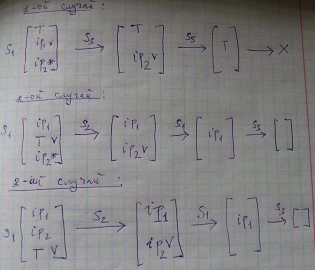 1-ой случай:
S1 [T ip1 v ip2*] S3 → [T ip2 v] S5 → [T] → X
2-ой случай:
S1 [ip1 T v ip2*] S2 → [ip1 ip2 v] S1 → [ip1] S3 → [ ]
3-ий случай:
S1 [ip1 ip2 T v] S2 → [ip1 ip2 v] S1 → [ip1] S3 → [ ]